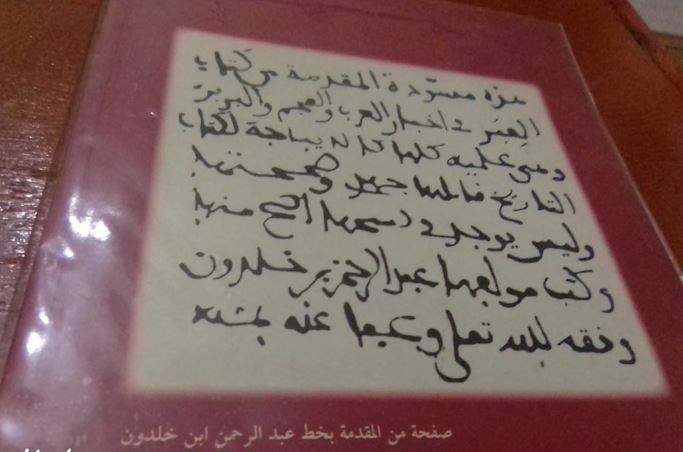 هذه مسودة المقدمة من كتاب
العبر في اخبار العرب والعجم والبربر
وهي علمية كلها كالديباجة لكتاب
التاريخ قابلتها جهدي وصححتها
وليس يوجد في نسخها اصح منها
وكتب مولفها عبد الرحمن بن خلدون
وفقه الله تعلى وعفا عنه بمنه
صفحة من المقدمة بخط عبد الرحمن ابن خلدون